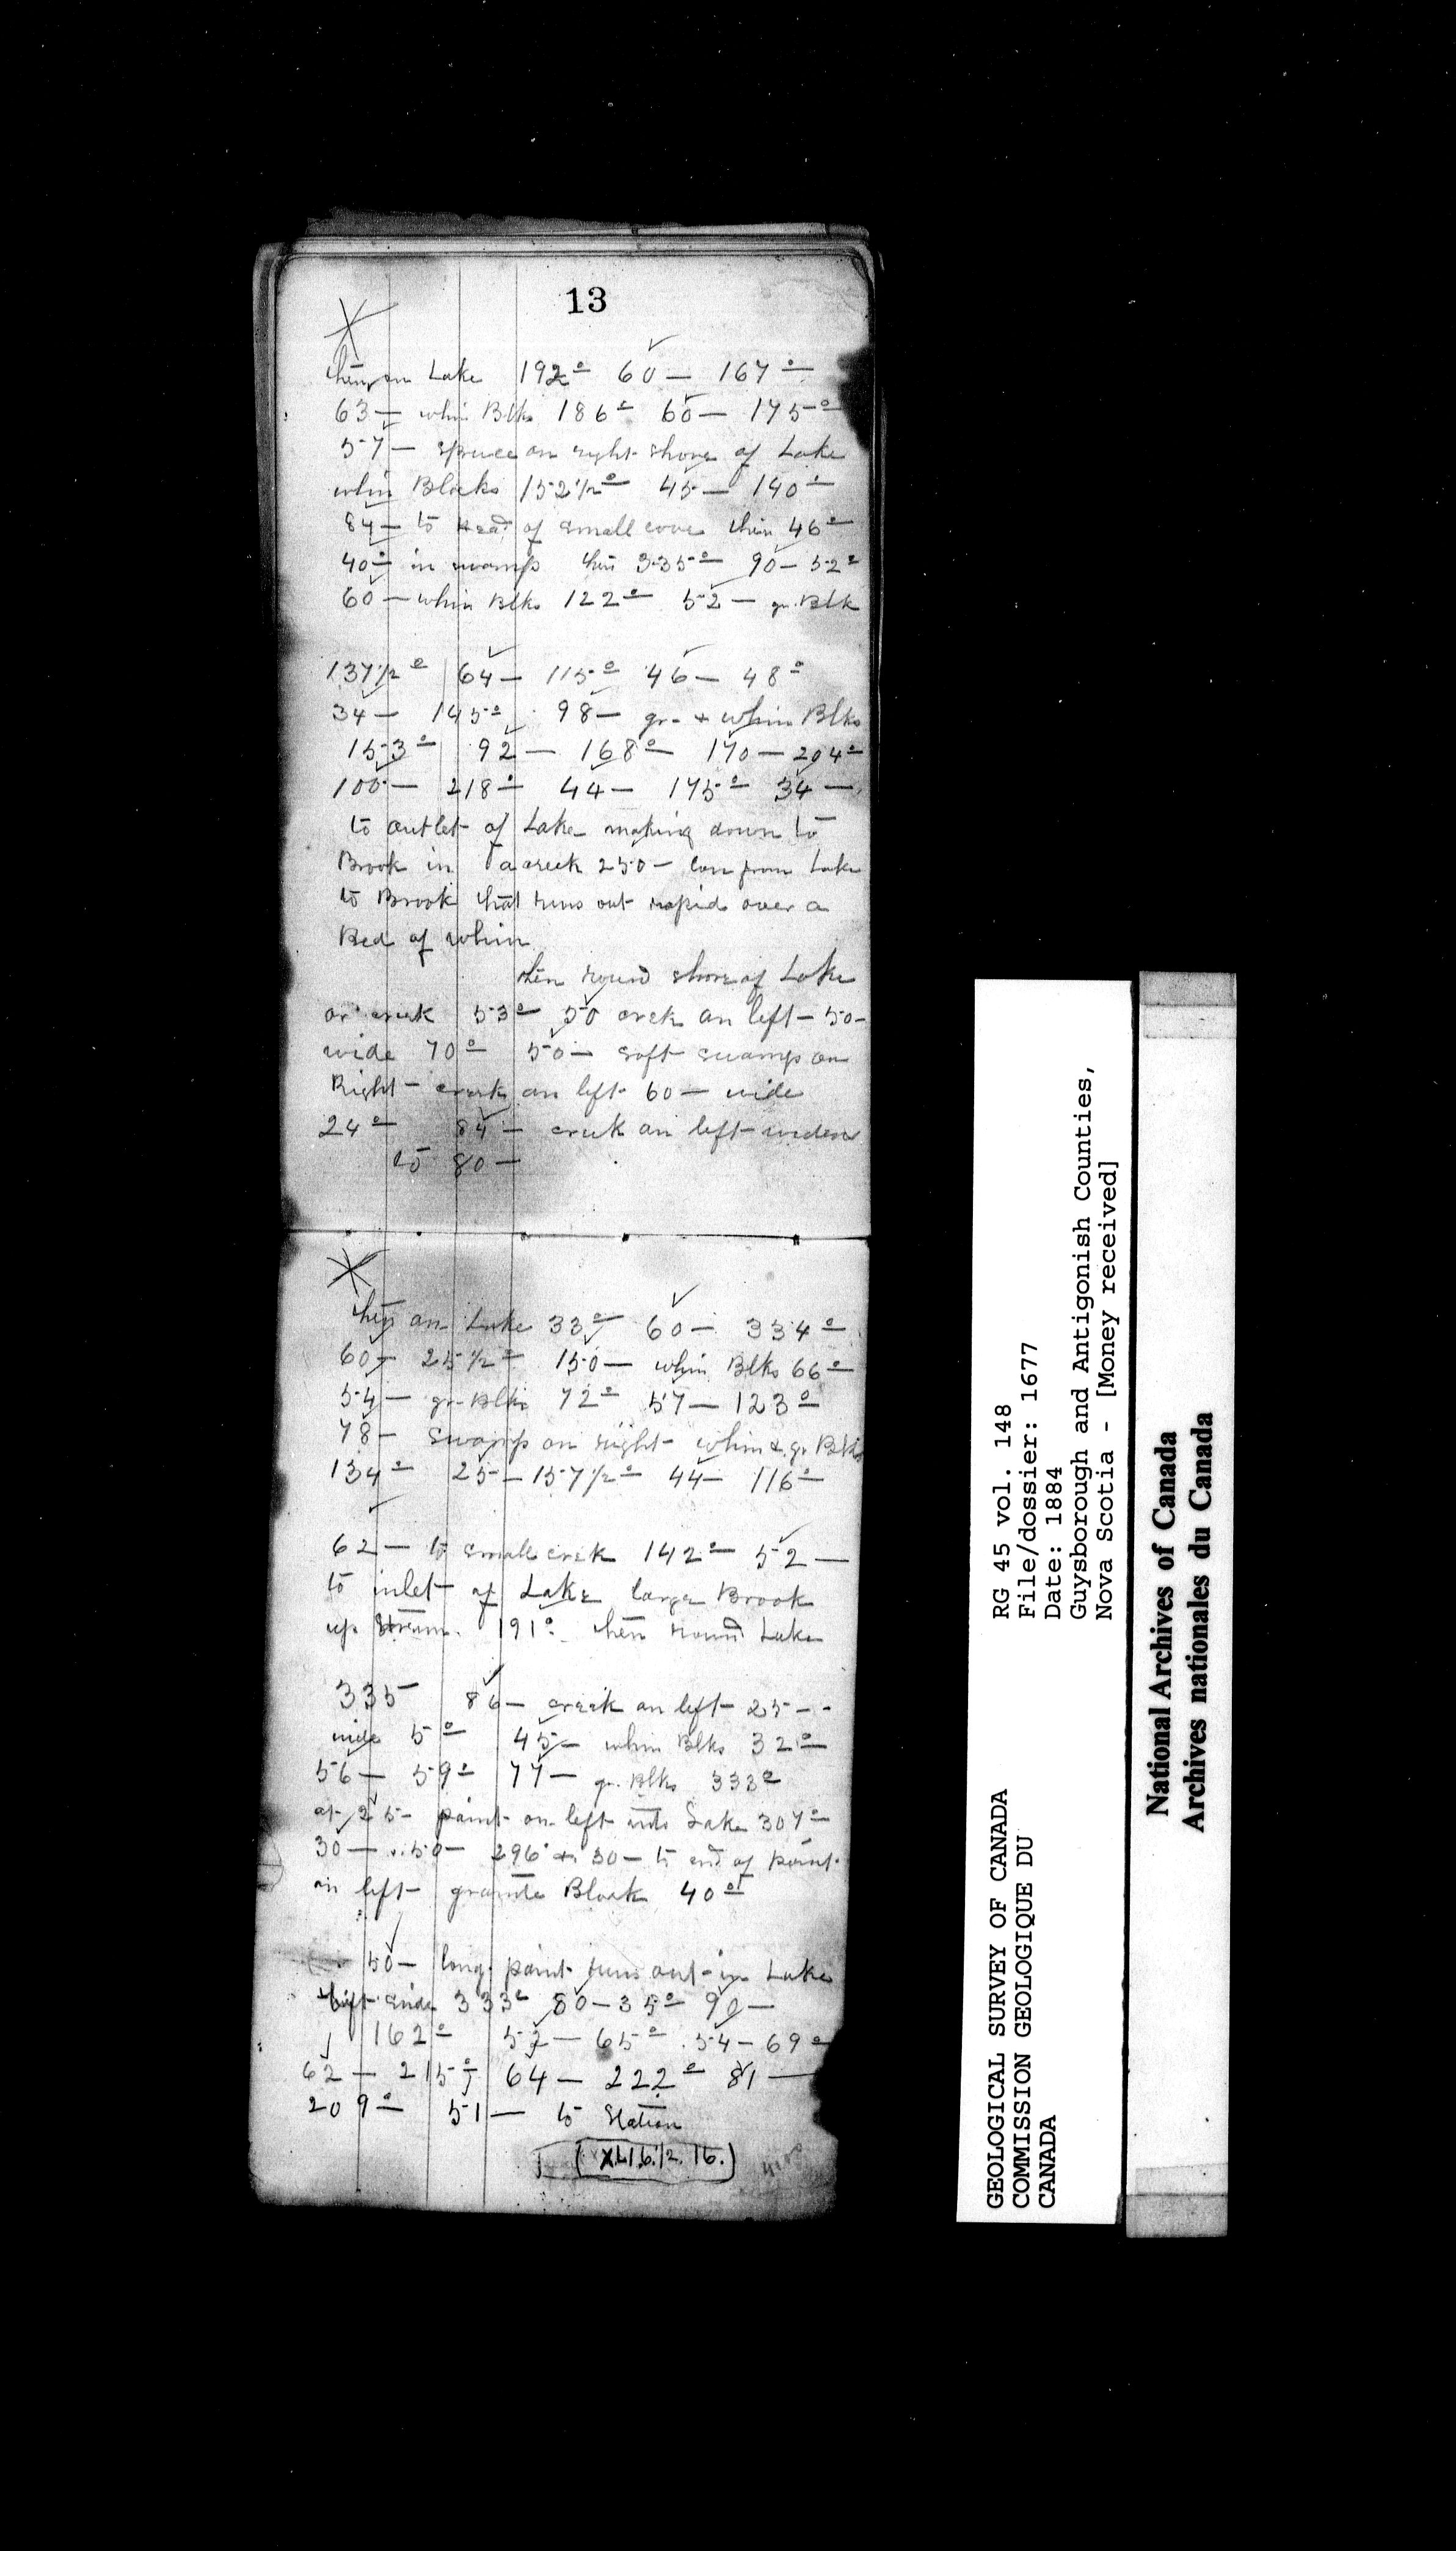 13
then on Lake 192° 60 — 167°
63 — whin Blks 186° 60 — 175°
57 — spruce on right shore of Lake
whin Blocks 152½° 45 — 140°
84 — to Head of small cove then 46°
40 — in swamp then 335° 90 — 52°
60 — whin Blks 122° 52 — gr. Blk
137½° 64 — 115° 46 — 48°
34 — 145° 98 — gr. + whin Blks
153° 92 — 168° 170 — 204°
100 — 218° 44 — 175° 34 —
to outlet of Lake making down to
Brook in a creek 250 — from Lake
to Brook that runs out rapid over a
Bed of whin
then round shore of Lake
or creek 53° 50 creek on left — 50 —
wide 70° 50 — soft swamp on
Right — creek on left 60 — wide
24° 84 — creek on left widens
to 80 —
then on Lake 33° 60 — 334°
60 — 25½° 150 — whin Blks 66°
54 — gr. Blks 72° 57 — 123°
78 — swamp on right — whin & gr Blks
134° 25 — 157½° 44 — 116°
62 — to small creek 142° 52 —
to inlet of Lake large Brook
up Stream 191° then round Lake
335 86 — creek on left — 25 —
wide 5° 45 — whin Blks 32°
56 — 59° 77 — gr. Blks 333°
at 25 — point on left into Lake 307°
30 — 50 — 296° 30 — to end of point
on left granite Block 40°
50 — long point runs out in Lake
left side 333° 80 — 35° 90 —
162° 52 — 65° 54 — 69°
62 — 215° 64 — 222° 81 —
209° 51 — to Station
GEOLOGICAL SURVEY OF CANADA
COMMISSION GEOLOGIQUE DU
CANADA
RG 45 vol. 148
File/dossier: 1677
Date: 1884
Guysborough and Antigonish Counties,
Nova Scotia - [Money received]
National Archives of Canada
Archives nationales du Canada